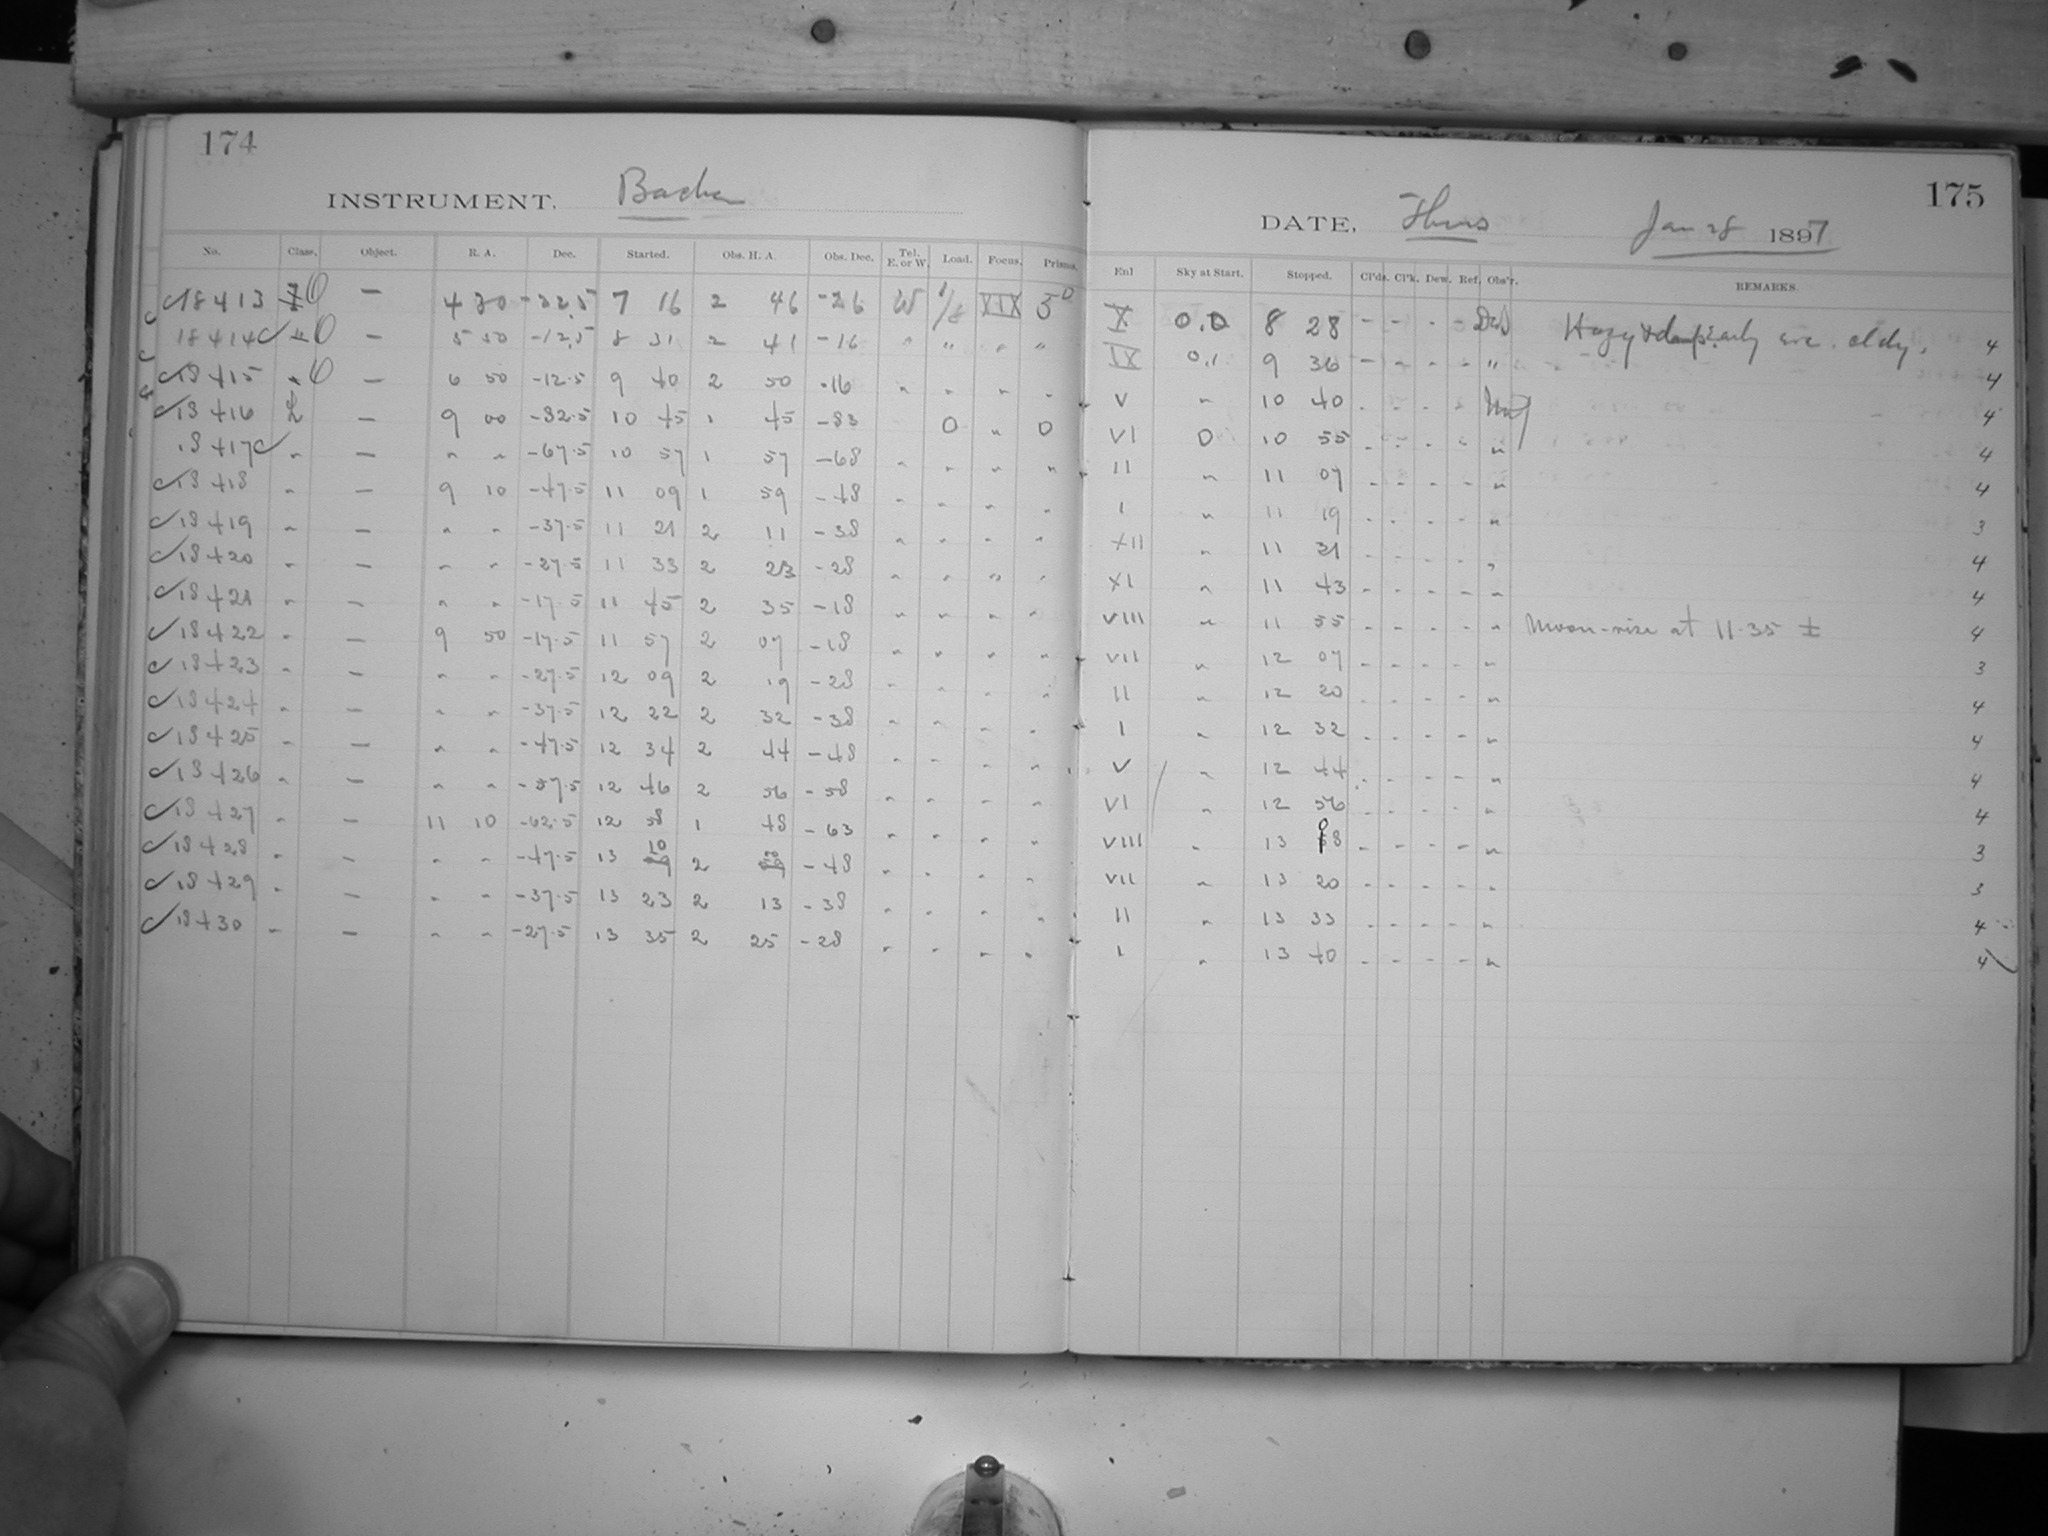 174
INSTRUMENT. Bache
No. Class. Object. R. A. Dec. Started. Obs. H. A. Obs. Dec. Tel. E. or W. Load. Focus. Prisms.
18413 0 — 4 30 -22.5 7 16 2 46 -26 W 1/8 XIX 5°
18414 0 — 5 50 -12.5 8 31 2 41 -16 " " " "
18415 " 0 — 6 50 -12.5 9 40 2 50 -16 " " " "
18416 2 — 9 00 -82.5 10 45 1 45 -83 0 " 0
18417 " — " " -67.5 10 57 1 57 -68 " " " "
18418 " — 9 10 -47.5 11 09 1 59 -48 " " " "
18419 " — " " -37.5 11 21 2 11 -38 " " " "
18420 " — " " -27.5 11 33 2 23 -28 " " " "
18421 " — " " -17.5 11 45 2 35 -18 " " " "
18422 " — 9 50 -17.5 11 57 2 07 -18 " " " "
18423 " — " " -27.5 12 09 2 19 -28 " " " "
18424 " — " " -37.5 12 22 2 32 -38 " " " "
18425 " — " " -47.5 12 34 2 44 -48 " " " "
18426 " — " " -57.5 12 46 2 56 -58 " " " "
18427 " — 11 10 -62.5 12 58 1 48 -63 " " " "
18428 " — " " -47.5 13 10 2 -48 " " " "
18429 " — " " -37.5 13 23 2 13 -38 " " " "
18430 " — " " -27.5 13 35 2 25 -28 " " " "
175
DATE, Thurs Jan 28 1897
Enl Sky at Start. Stopped. Cl'ds. Cl'k. Dew. Ref. Obs'r. REMARKS.
X 0.0 8 28 - - - - Hazy & damp. Early eve. cldy. 4
IX 0.1 9 36 - - - - " 4
V " 10 40 - - - - 4
VI 0 10 55 - - - - " 4
II " 11 07 - - - - " 4
I " 11 19 - - - - " 3
XII " 11 31 - - - - " 4
XI " 11 43 - - - - " 4
VIII " 11 55 - - - - " Moon-rise at 11.35 ± 4
VII " 12 07 - - - - " 3
II " 12 20 - - - - " 4
I " 12 32 - - - - " 4
V " 12 44 - - - - " 4
VI " 12 56 - - - - " 4
VIII " 13 08 - - - - " 3
VII " 13 20 - - - - " 3
II " 13 33 - - - - " 4
I " 13 40 - - - - " 4